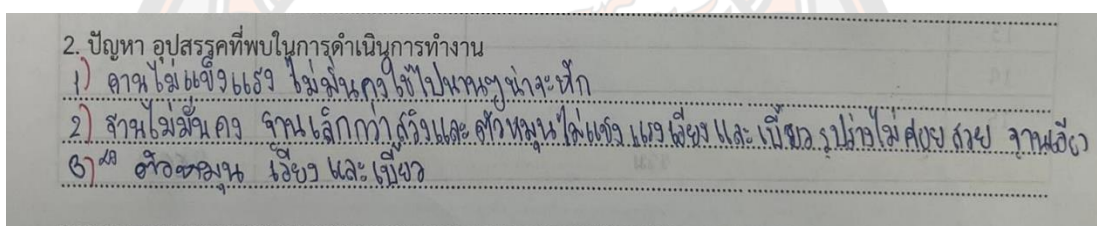 2. ปัญหา อุปสรรคที่พบในการดำเนินการทำงาน
1) คานไม่แข็งแรง ไม่มั่นคงใช้ไปนานๆน่าจะหัก
2) ฐานไม่มั่นคง ฐานเล็กกว่าสวิงและตัวหมุนไม่แข็งแรงเอียงและเบี้ยว รูปร่างไม่ค่อยสวย ฐานเอียง
3) ตัวหมุน เอียง และเบี้ยว